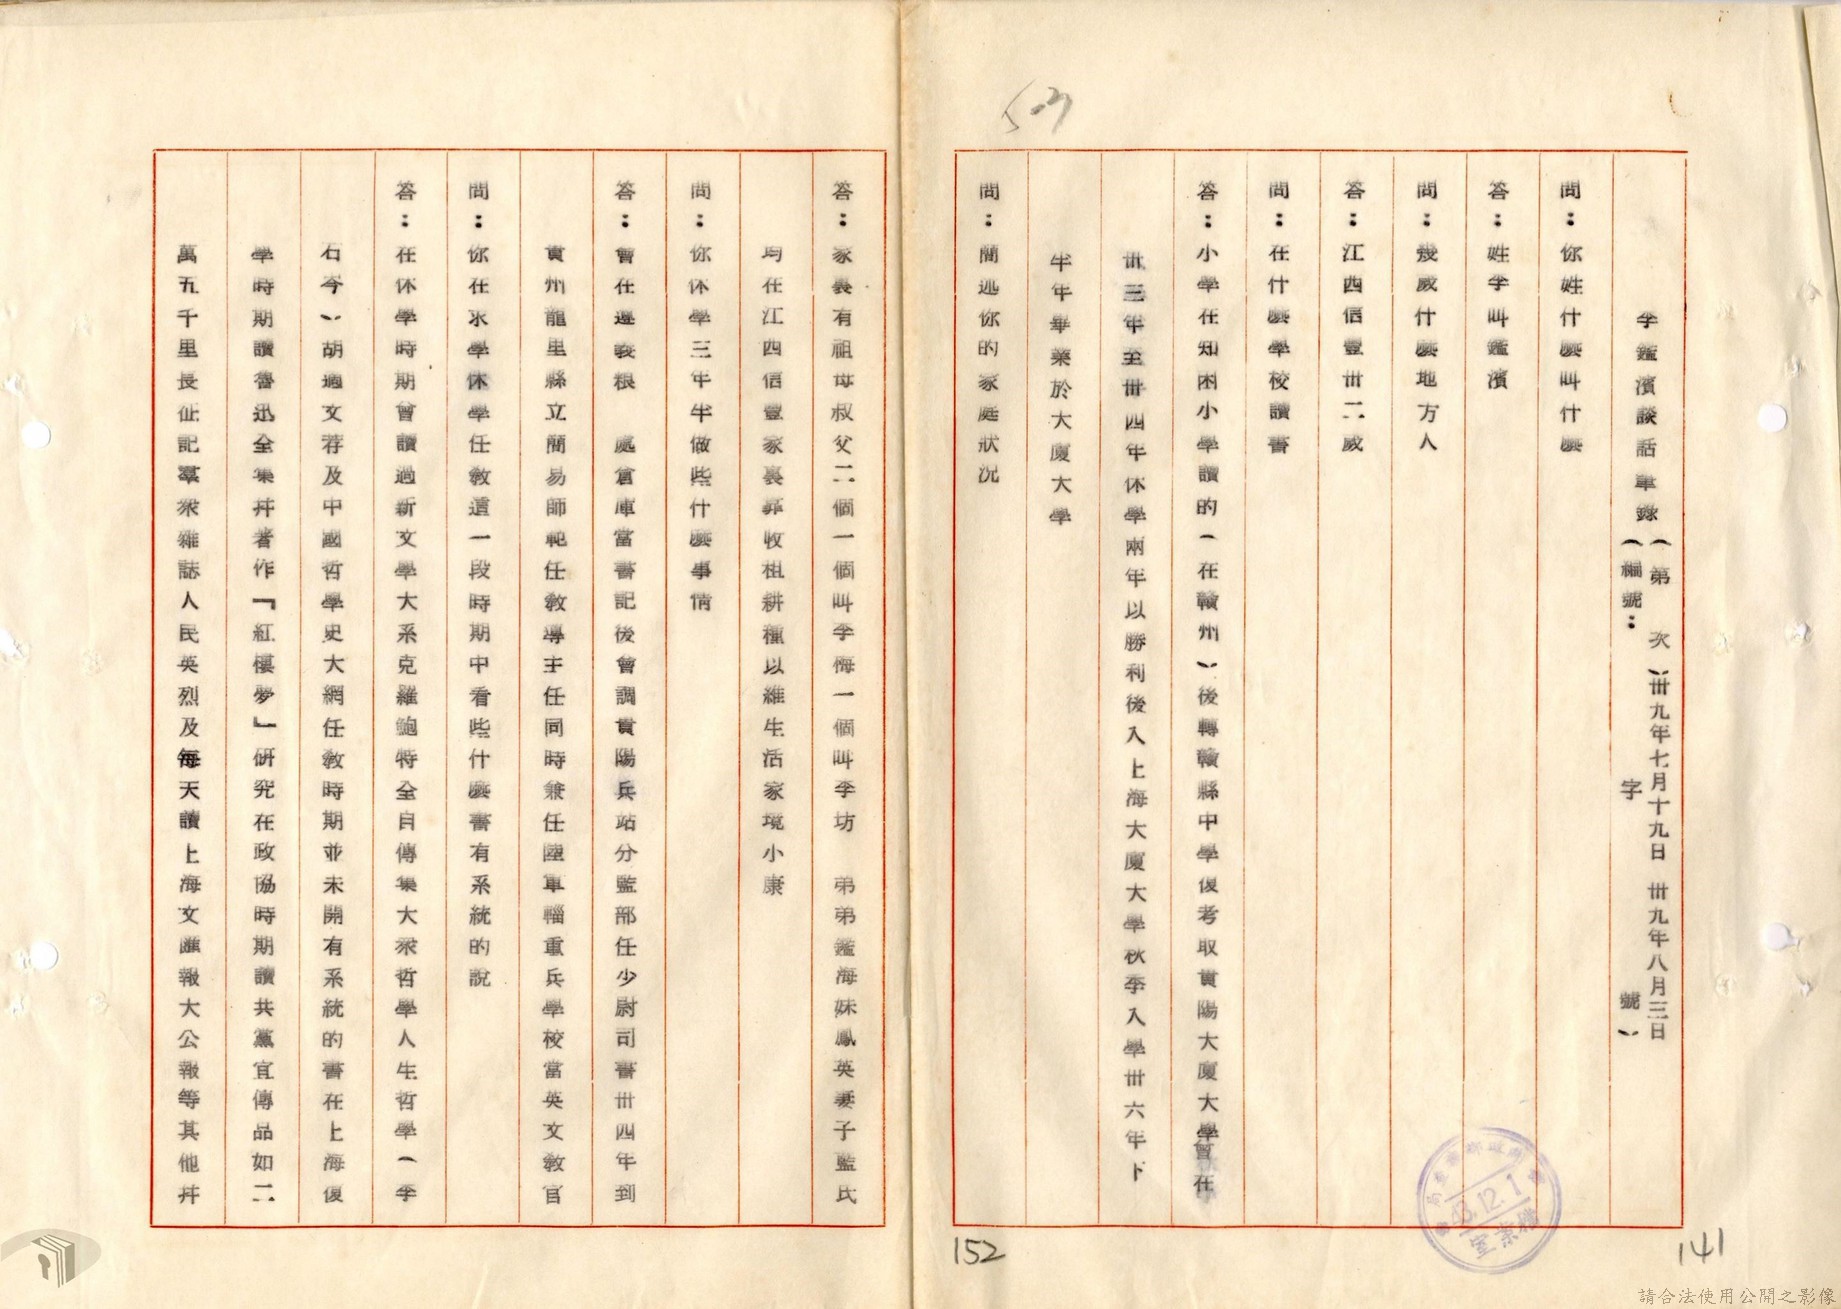 李鑑濱談話筆錄（第　次）卅九年七月十九日　卅九年八月三日
（編號：　字　號）
問：你姓什麼叫什麼
答：姓李叫鑑濱
問：幾歲什麼地方人
答：江西信豐卅二歲
問：在什麼學校讀書
答：小學在知困小學讀的（在贛州）後轉贛縣中學復考取貴陽大廈大學會在
卅三年至卅四年休學兩年以勝利後入上海大廈大學秋季入學卅六年下
半年畢業於大廈大學
問：簡述你的家庭狀況
答：家裏有祖母叔父二個一個叫李梅一個叫李坊　弟弟鑑海妹鳳英妻子藍氏
均在江西信豐家裏靠收租耕種以維生活家境小康
問：你休學三年半做些什麼事情
答：會在遵義根　處倉庫當書記後會調貴陽兵站分監部任少尉司書卅四年到
貴州龍里縣立簡易師範任教導主任同時兼任陸軍輜重兵學校當英文教官
問：你在求學休學任教這一段時期中看些什麼書有系統的說
答：在休學時期會讀過新文學大系克羅鮑特全自傳集大衆哲學人生哲學（李
石岑）胡適文存及中國哲學史大網任教時期並未開有系統的書在上海復
學時期讀魯迅全集并著作『紅樓夢』研究在政協時期讀共黨宣傳品如二
萬五千里長征記羣衆雜誌人民英烈及每天讀上海文匯報大公報等其他并
5-7
152
141
43.12.1
檔案室
請合法使用公開之影像